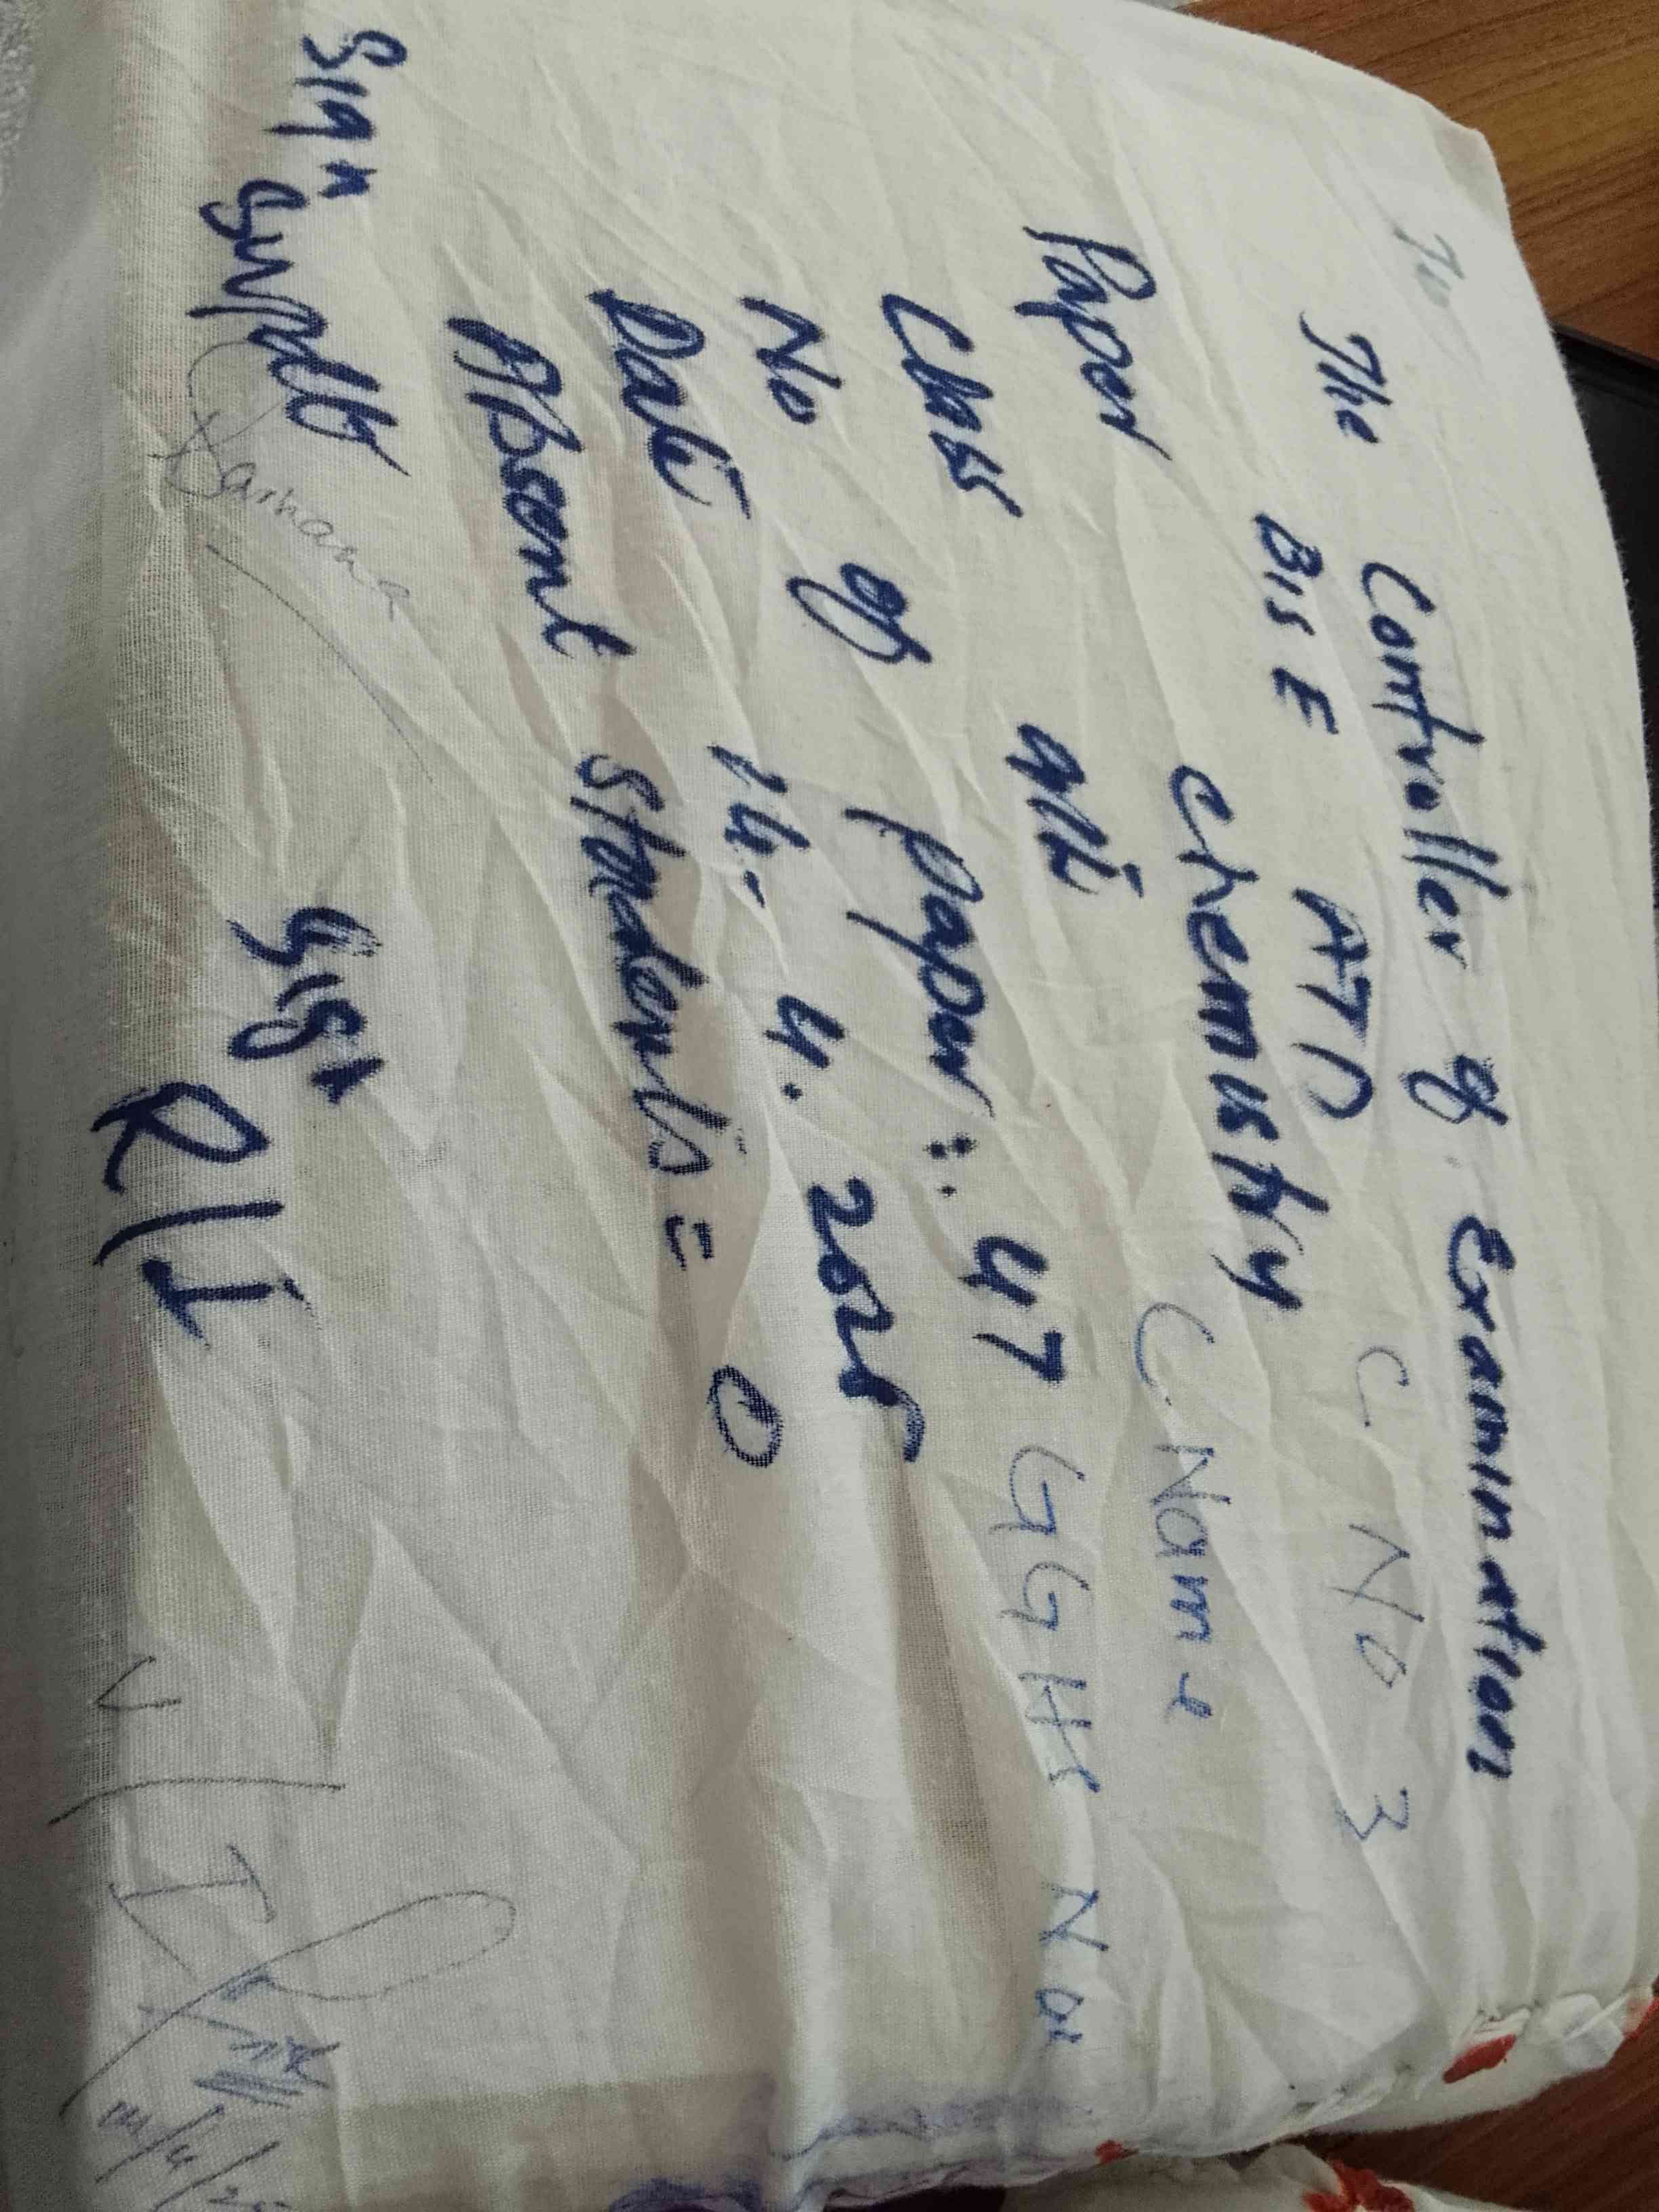 To
The Controller of Examination
BISE ATD C No 3
Paper Chemistry C Name
Class 9th GGHS No1
No of paper :. 47
Date 14. 4. 2025
Absent Students = 0
Sign Supdtt Sign R/I V/I
Farhana
14/4/25